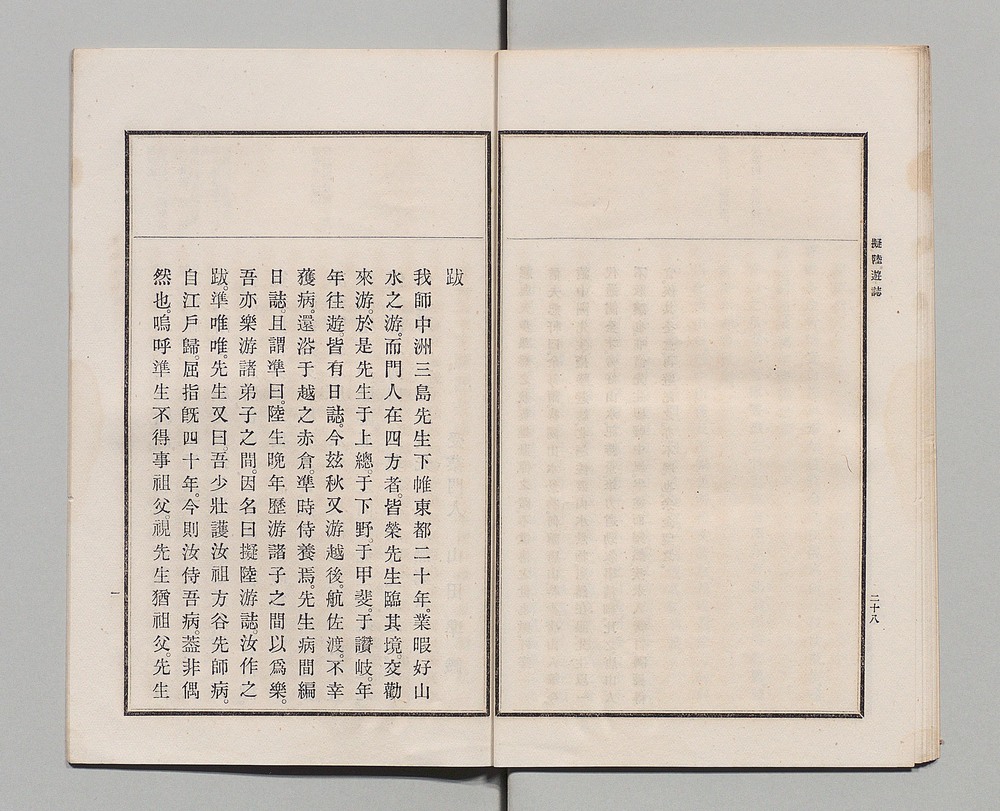 擬陸遊誌
二十八
跋
我師中洲三島先生下帷東都二十年。業暇好山
水之游。而門人在四方者。皆榮先生臨其境。交勸
來游。於是先生于上總。于下野。于甲斐。于讚岐。年
年往遊。皆有日誌。今玆秋又游越後。航佐渡。不幸
獲病。還浴于越之赤倉。準時侍養焉。先生病間編
日誌。且謂準曰。陸生晩年歷游諸子之間以爲樂。
吾亦樂游諸弟子之間。因名曰擬陸游誌。汝作之
跋。準唯唯。先生又曰。吾少壯護汝祖方谷先師病。
自江戶歸。屈指旣四十年。今則汝侍吾病。葢非偶
然也。嗚呼準生不得事祖父。視先生猶祖父。先生
一